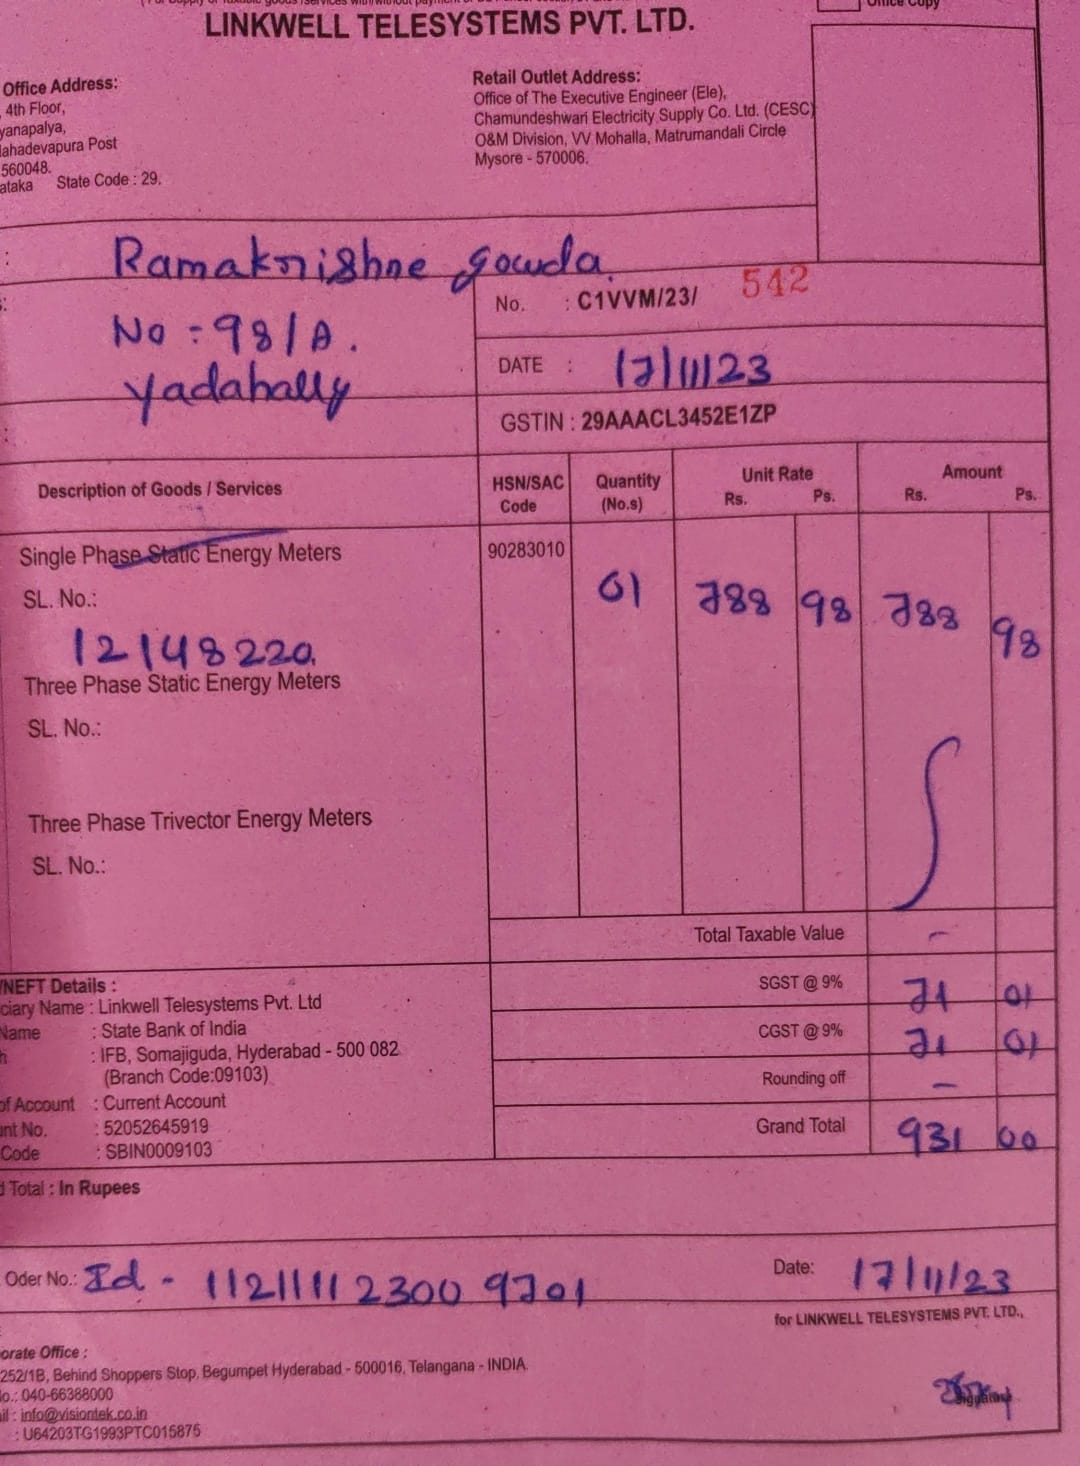 LINKWELL TELESYSTEMS PVT. LTD.
Office Copy
Office Address:
4th Floor,
yanapalya,
ahadevapura Post
560048.
ataka State Code : 29.
Retail Outlet Address:
Office of The Executive Engineer (Ele),
Chamundeshwari Electricity Supply Co. Ltd. (CESC)
O&M Division, VV Mohalla, Matrumandali Circle
Mysore - 570006.
: Ramakrishne gowda.
No : 98/A.
Yadahally
No. : C1VVM/23/ 542
DATE : 17/11/23
GSTIN : 29AAACL3452E1ZP
Description of Goods / Services HSN/SAC Code Quantity (No.s) Unit Rate Rs. Ps. Amount Rs. Ps.
Single Phase Static Energy Meters 90283010 01 788 98 788 98
SL. No.:
12148220.
Three Phase Static Energy Meters
SL. No.:
Three Phase Trivector Energy Meters
SL. No.:
Total Taxable Value -
SGST @ 9% 71 01
CGST @ 9% 71 01
Rounding off -
Grand Total 931 00
/NEFT Details :
ciary Name : Linkwell Telesystems Pvt. Ltd
Name : State Bank of India
h : IFB, Somajiguda, Hyderabad - 500 082
(Branch Code:09103)
of Account : Current Account
unt No. : 52052645919
Code : SBIN0009103
d Total : In Rupees
Oder No.: Id - 11211112300 9701
Date: 17/11/23
for LINKWELL TELESYSTEMS PVT. LTD.,
orate Office :
252/1B, Behind Shoppers Stop, Begumpet Hyderabad - 500016, Telangana - INDIA.
lo.: 040-66388000
ail : info@visiontek.co.in
: U64203TG1993PTC015875